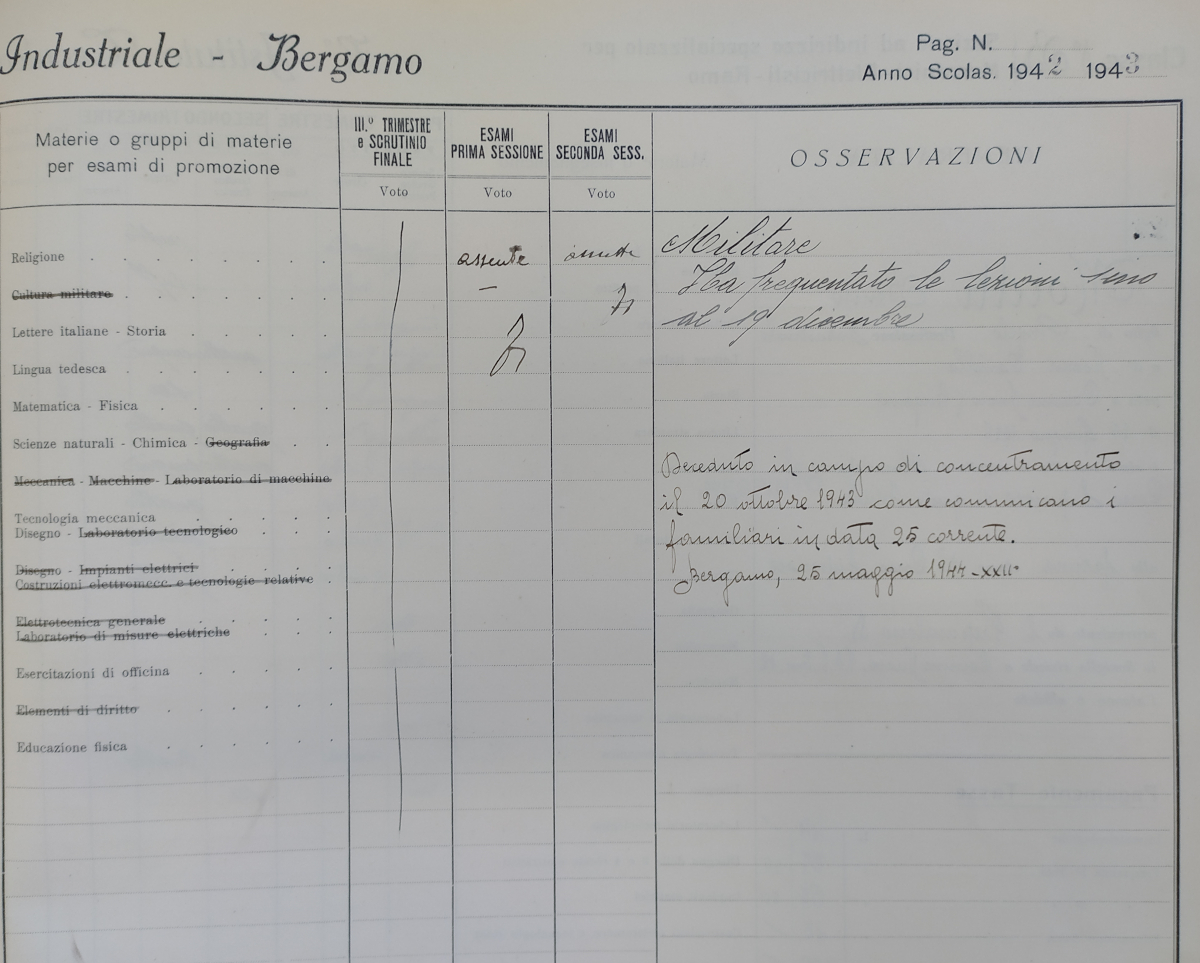 Industriale - Bergamo
Pag. N.
Anno Scolas. 1942 1943
Materie o gruppi di materie
per esami di promozione
III.º TRIMESTRE
e SCRUTINIO
FINALE
Voto
ESAMI
PRIMA SESSIONE
Voto
ESAMI
SECONDA SESS.
Voto
OSSERVAZIONI
Religione . . . . . . . assente
Cultura militare . . . . . . –
Lettere italiane - Storia . . . . .
Lingua tedesca . . . . . . .
Matematica - Fisica . . . . . .
Scienze naturali - Chimica - Geografia . .
Meccanica - Macchine - Laboratorio di macchine
Tecnologia meccanica . . . . .
Disegno - Laboratorio tecnologico . . .
Disegno - Impianti elettrici . . . .
Costruzioni elettromecc. e tecnologie relative .
Elettrotecnica generale . . . . .
Laboratorio di misure elettriche . . .
Esercitazioni di officina . . . . .
Elementi di diritto . . . . . .
Educazione fisica . . . . . .
Militare
Ha frequentato le lezioni sino
al 19 dicembre
Deceduto in campo di concentramento
il 20 ottobre 1943 come comunicano i
familiari in data 25 corrente.
Bergamo, 25 maggio 1944-XXII°